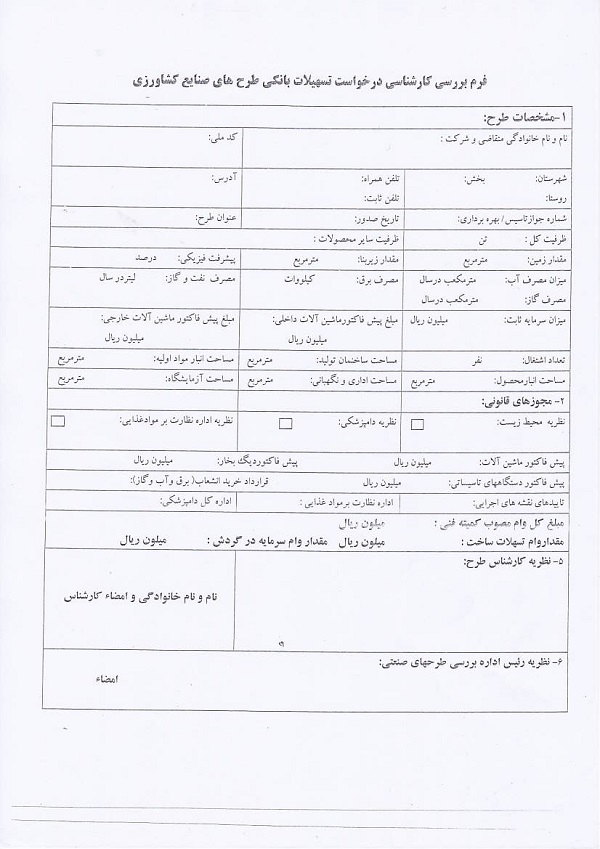 فرم بررسی کارشناسی درخواست تسهیلات بانکی طرح های صنایع کشاورزی
۱-مشخصات طرح:
نام و نام خانوادگی متقاضی و شرکت : کد ملی:
شهرستان: بخش: تلفن همراه: آدرس:
روستا: تلفن ثابت:
شماره جوازتاسیس/ بهره برداری: تاریخ صدور: عنوان طرح:
ظرفیت کل : تن ظرفیت سایر محصولات :
مقدار زمین: مترمربع مقدار زیربنا: مترمربع پیشرفت فیزیکی: درصد
میزان مصرف آب: مترمکعب درسال مصرف برق: کیلووات مصرف نفت و گاز: لیتردر سال
مصرف گاز: مترمکعب درسال
میزان سرمایه ثابت: میلیون ریال مبلغ پیش فاکتورماشین آلات داخلی: مبلغ پیش فاکتور ماشین آلات خارجی:
میلیون ریال میلیون ریال
تعداد اشتغال: نفر مساحت ساختمان تولید: مترمربع مساحت انبار مواد اولیه: مترمربع
مساحت انبارمحصول: مترمربع مساحت اداری و نگهبانی: مترمربع مساحت آزمایشگاه: مترمربع
۲- مجوزهای قانونی:
نظریه محیط زیست: نظریه دامپزشکی: نظریه اداره نظارت بر موادغذایی:
پیش فاکتور ماشین آلات: میلیون ریال پیش فاکتوردیگ بخار: میلیون ریال
پیش فاکتور دستگاههای تاسیساتی: میلیون ریال قرارداد خرید انشعاب( برق وآب وگاز):
تاییدهای نقشه های اجرایی: اداره نظارت برمواد غذایی : اداره کل دامپزشکی:
مبلغ کل وام مصوب کمیته فنی : میلیون ریال
مقداروام تسهلات ساخت : میلیون ریال مقدار وام سرمایه در گردش : میلیون ریال
۵- نظریه کارشناس طرح:
نام و نام خانوادگی و امضاء کارشناس
۶- نظریه رئیس اداره بررسی طرحهای صنعتی:
امضاء